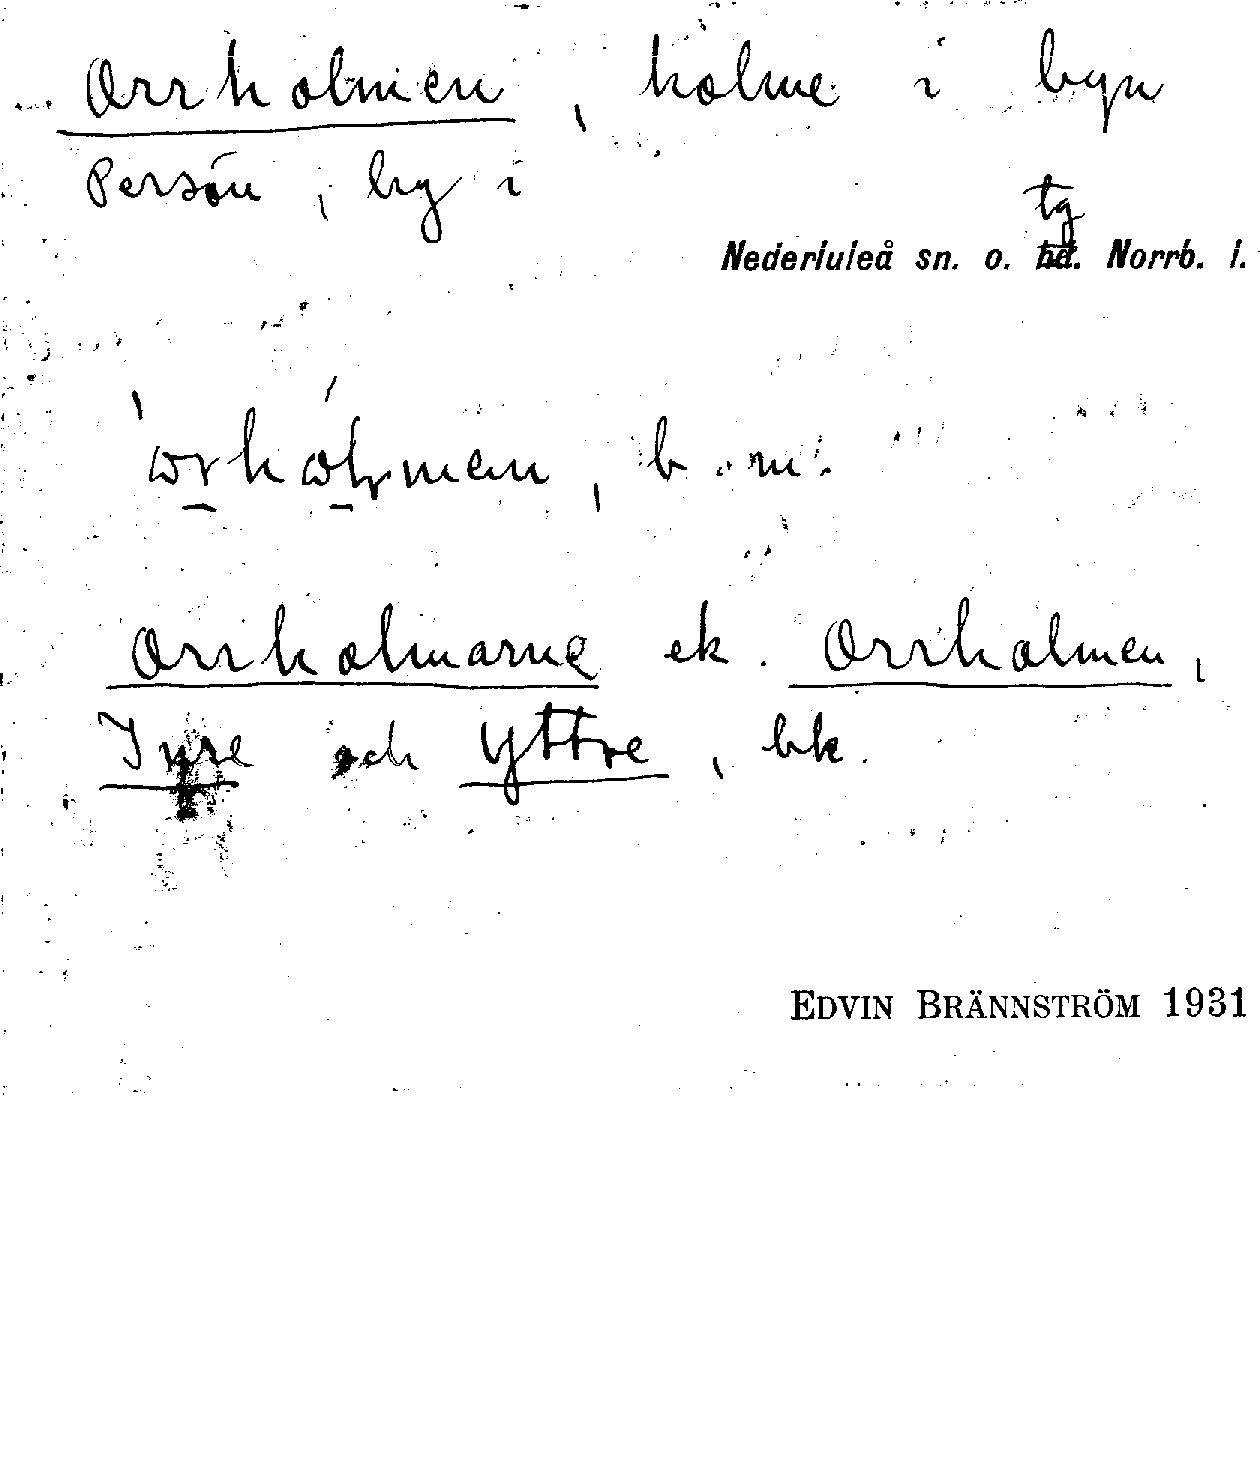 Orrholmen, holme i byn
Persön, by i
tg
Nederluleå sn. o. hd. Norrb. l.
b. m.
Orrholmarne ek. Orrholmen,
Inre och Yttre, bk.
EDVIN BRÄNNSTRÖM 1931